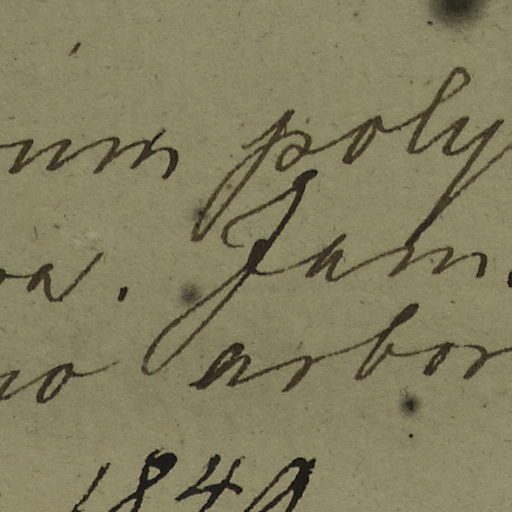 um poly
a. Jam.
no arbor
1849